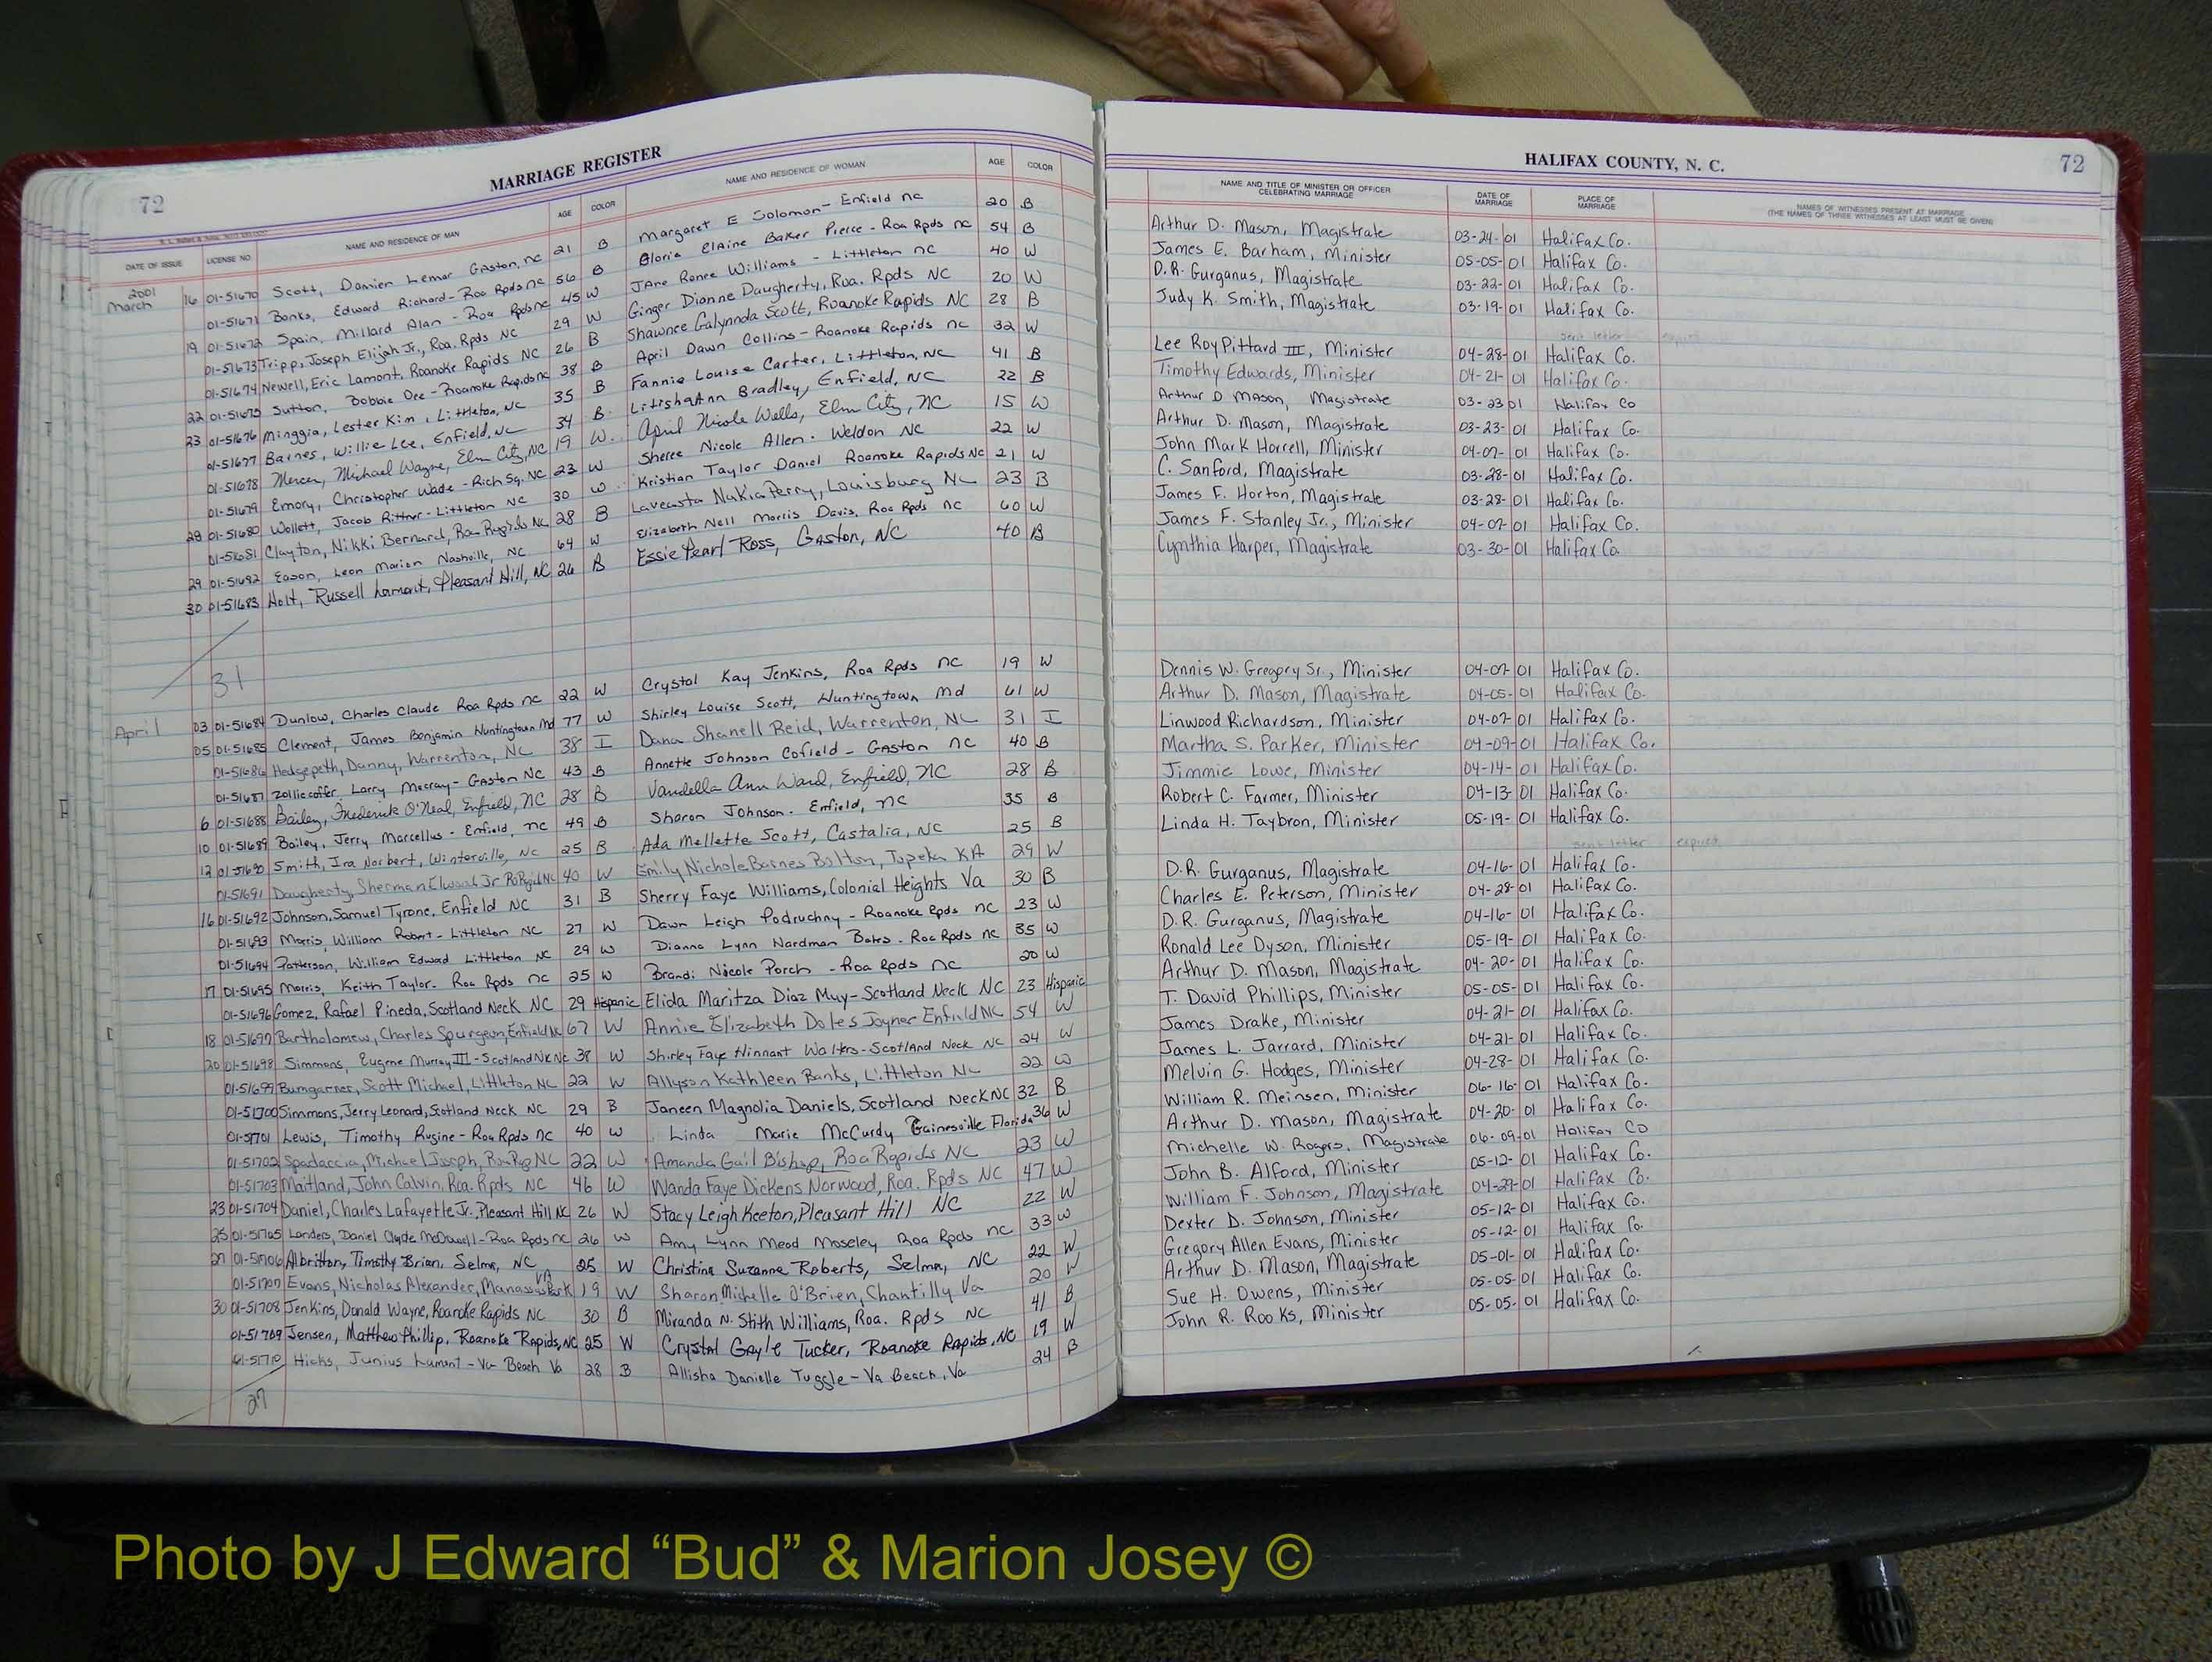 72 MARRIAGE REGISTER
DATE OF ISSUE LICENSE NO. NAME AND RESIDENCE OF MAN AGE COLOR NAME AND RESIDENCE OF WOMAN AGE COLOR
2001
March 16 01-51670 Scott, Damien Lemar Gaston, nc 21 B Margaret E Solomon - Enfield nc 20 B
01-51671 Banks, Edward Richard - Roa Rpds nc 56 B Gloria Elaine Baker Pierce - Roa Rpds nc 54 B
19 01-51672 Spain, Millard Alan - Roa Rpds nc 45 W Jane Renee Williams - Littleton nc 40 W
01-51673 Tripp, Joseph Elijah Jr., Roa. Rpds NC 29 W Ginger Dianne Daugherty, Roa. Rpds NC 20 W
01-51674 Newell, Eric Lamont, Roanoke Rapids NC 26 B Shawnee Galynnda Scott, Roanoke Rapids NC 28 B
22 01-51675 Sutton, Bobbie Dee - Roanoke Rapids nc 38 B April Dawn Collins - Roanoke Rapids nc 32 W
23 01-51676 Minggia, Lester Kim, Littleton, NC 35 B Fannie Louise Carter, Littleton, NC 41 B
01-51677 Barnes, Willie Lee, Enfield, NC 34 B. Litisha Ann Bradley, Enfield, NC 22 B
01-51678 Mercer, Michael Wayne, Elm City, NC 19 W. April Nicole Wells, Elm City, NC 15 W
01-51679 Emory, Christopher Wade - Rich Sq. NC 23 W Sheree Nicole Allen. Weldon NC 22 W
28 01-51680 Wollett, Jacob Rittner - Littleton NC 30 W Kristian Taylor Daniel Roanoke Rapids NC 21 W
01-51681 Clayton, Nikki Bernard, Roa Rapids NC 28 B Lavecasta Nakia Perry, Louisburg NC 23 B
29 01-51682 Eason, Leon Marion Nashville, NC 64 W Elizabeth Nell Morris Davis, Roa Rpds nc 60 W
30 01-51683 Holt, Russell Lamont, Pleasant Hill, NC 26 B Essie Pearl Ross, Gaston, NC 40 B
31
April 03 01-51684 Dunlow, Charles Claude Roa Rpds nc 22 W Crystal Kay Jenkins, Roa Rpds nc 19 W
05 01-51685 Clement, James Benjamin Huntingtown Md 77 W Shirley Louise Scott, Huntingtown Md 61 W
01-51686 Hedgepeth, Danny, Warrenton, NC 38 I Dana Shanell Reid, Warrenton, NC 31 I
01-51687 Zollicoffer, Larry Mecray - Gaston NC 43 B Annette Johnson Cofield - Gaston nc 40 B
6 01-51688 Bailey, Frederick O'Neal, Enfield, NC 28 B Vandella Ann Ward, Enfield, NC 28 B
10 01-51689 Bailey, Jerry Marcellus - Enfield, nc 49 B Sharon Johnson. Enfield, nc 35 B
12 01-51690 Smith, Ira Norbert, Winterville, NC 25 B Ada Mellette Scott, Castalia, NC 25 B
01-51691 Daugherty, Sherman Elwood Jr 40 W Emily Nichole Barnes Bolton, Topeka KA 29 W
16 01-51692 Johnson, Samuel Tyrone, Enfield NC 31 B Sherry Faye Williams, Colonial Heights Va 30 B
01-51693 Morris, William Robert - Littleton NC 27 W Dawn Leigh Podruchny - Roanoke Rpds nc 23 W
01-51694 Patterson, William Edward Littleton NC 29 W Dianna Lynn Hardman Bates - Roa Rpds nc 35 W
17 01-51695 Morris, Keith Taylor. Roa Rpds nc 25 W Brandi Nicole Porch - Roa Rpds nc 20 W
01-51696 Gomez, Rafael Pineda, Scotland Neck NC 29 Hispanic Elida Maritza Diaz Muy - Scotland Neck NC 23 Hispanic
18 01-51697 Bartholomew, Charles Spurgeon, Enfield NC 67 W Annie Elizabeth Doles Joyner Enfield NC 54 W
20 01-51698 Simmons, Eugene Murray III - Scotland Nk NC 38 W Shirley Faye Hinnant Walters - Scotland Neck NC 24 W
01-51699 Bumgarner, Scott Michael, Littleton NC 22 W Allyson Kathleen Banks, Littleton NC 22 W
01-51700 Simmons, Jerry Leonard, Scotland Neck NC 29 B Janeen Magnolia Daniels, Scotland Neck NC 32 B
01-51701 Lewis, Timothy Rugine - Roa Rpds nc 40 W Linda Marie McCurdy Gainesville Florida 36 W
01-51702 Spadaccia, Michael Joseph, Roa Rap NC 22 W Amanda Gail Bishop, Roa Rapids NC 23 W
01-51703 Maitland, John Calvin, Roa. Rpds NC 46 W Wanda Faye Dickens Norwood, Roa. Rpds NC 47 W
23 01-51704 Daniel, Charles Lafayette Jr. Pleasant Hill NC 26 W Stacy Leigh Keeton, Pleasant Hill NC 22 W
25 01-51705 Landers, Daniel Clyde McDowell - Roa Rpds nc 26 W Amy Lynn Mead Moseley Roa Rpds nc 33 W
27 01-51706 Albritton, Timothy Brian, Selma, NC 25 W Christina Suzanne Roberts, Selma, NC 22 W
01-51707 Evans, Nicholas Alexander, Manassas Park VA 19 W Sharon Michelle O'Brien, Chantilly Va 20 W
30 01-51708 Jenkins, Donald Wayne, Roanoke Rapids NC 30 B Miranda N. Stith Williams, Roa. Rpds NC 41 B
01-51709 Jensen, Matthew Phillip, Roanoke Rapids, NC 25 W Crystal Gayle Tucker, Roanoke Rapids, NC 19 W
01-51710 Hicks, Junius Lamont - Va Beach Va 28 B Allisha Danielle Tuggle - Va Beach, Va 24 B
27
HALIFAX COUNTY, N. C. 72
NAME AND TITLE OF MINISTER OR OFFICER CELEBRATING MARRIAGE DATE OF MARRIAGE PLACE OF MARRIAGE NAMES OF WITNESSES PRESENT AT MARRIAGE (THE NAMES OF THREE WITNESSES AT LEAST MUST BE GIVEN)
Arthur D. Mason, Magistrate 03-24-01 Halifax Co.
James E. Barham, Minister 05-05-01 Halifax Co.
D.R. Gurganus, Magistrate 03-22-01 Halifax Co.
Judy K. Smith, Magistrate 03-19-01 Halifax Co.
sent letter expired
Lee Roy Pittard III, Minister 04-28-01 Halifax Co.
Timothy Edwards, Minister 04-21-01 Halifax Co.
Arthur D Mason, Magistrate 03-23 01 Halifax Co
Arthur D. Mason, Magistrate 03-23-01 Halifax Co.
John Mark Horrell, Minister 04-07-01 Halifax Co.
C. Sanford, Magistrate 03-28-01 Halifax Co.
James F. Horton, Magistrate 03-28-01 Halifax Co.
James F. Stanley Jr., Minister 04-07-01 Halifax Co.
Cynthia Harper, Magistrate 03-30-01 Halifax Co.
Dennis W. Gregory Sr., Minister 04-07-01 Halifax Co.
Arthur D. Mason, Magistrate 04-05-01 Halifax Co.
Linwood Richardson, Minister 04-07-01 Halifax Co.
Martha S. Parker, Minister 04-09-01 Halifax Co.
Jimmie Lowe, Minister 04-14-01 Halifax Co.
Robert C. Farmer, Minister 04-13-01 Halifax Co.
Linda H. Taybron, Minister 05-19-01 Halifax Co.
sent letter expired
D.R. Gurganus, Magistrate 04-16-01 Halifax Co.
Charles E. Peterson, Minister 04-28-01 Halifax Co.
D.R. Gurganus, Magistrate 04-16-01 Halifax Co.
Ronald Lee Dyson, Minister 05-19-01 Halifax Co.
Arthur D. Mason, Magistrate 04-20-01 Halifax Co.
T. David Phillips, Minister 05-05-01 Halifax Co.
James Drake, Minister 04-21-01 Halifax Co.
James L. Jarrard, Minister 04-21-01 Halifax Co.
Melvin G. Hodges, Minister 04-28-01 Halifax Co.
William R. Meinsen, Minister 06-16-01 Halifax Co.
Arthur D. Mason, Magistrate 04-20-01 Halifax Co.
Michelle W. Rogers, Magistrate 06-09-01 Halifax Co
John B. Alford, Minister 05-12-01 Halifax Co.
William F. Johnson, Magistrate 04-29-01 Halifax Co.
Dexter D. Johnson, Minister 05-12-01 Halifax Co.
Gregory Allen Evans, Minister 05-12-01 Halifax Co.
Arthur D. Mason, Magistrate 05-01-01 Halifax Co.
Sue H. Owens, Minister 05-05-01 Halifax Co.
John R. Rooks, Minister 05-05-01 Halifax Co.
Photo by J Edward “Bud” & Marion Josey ©